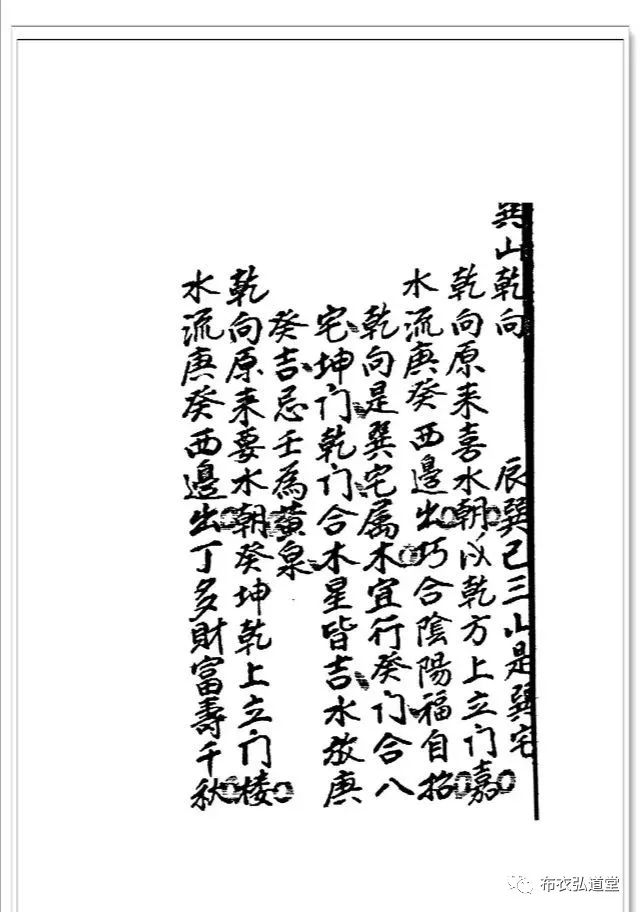 巽山乾向　辰巽巳三山是巽宅
乾向原来喜水朝癸坤乾方上立门嘉
水流庚癸西邊出巧合陰陽福自招
乾向是巽宅属木宜行癸门合八
宅坤门乾门合木星皆吉水放庚
癸吉忌壬為黃泉
乾向原来要水朝癸坤乾上立门楼
水流庚癸西邊出丁多財富壽千秋
布衣弘道堂